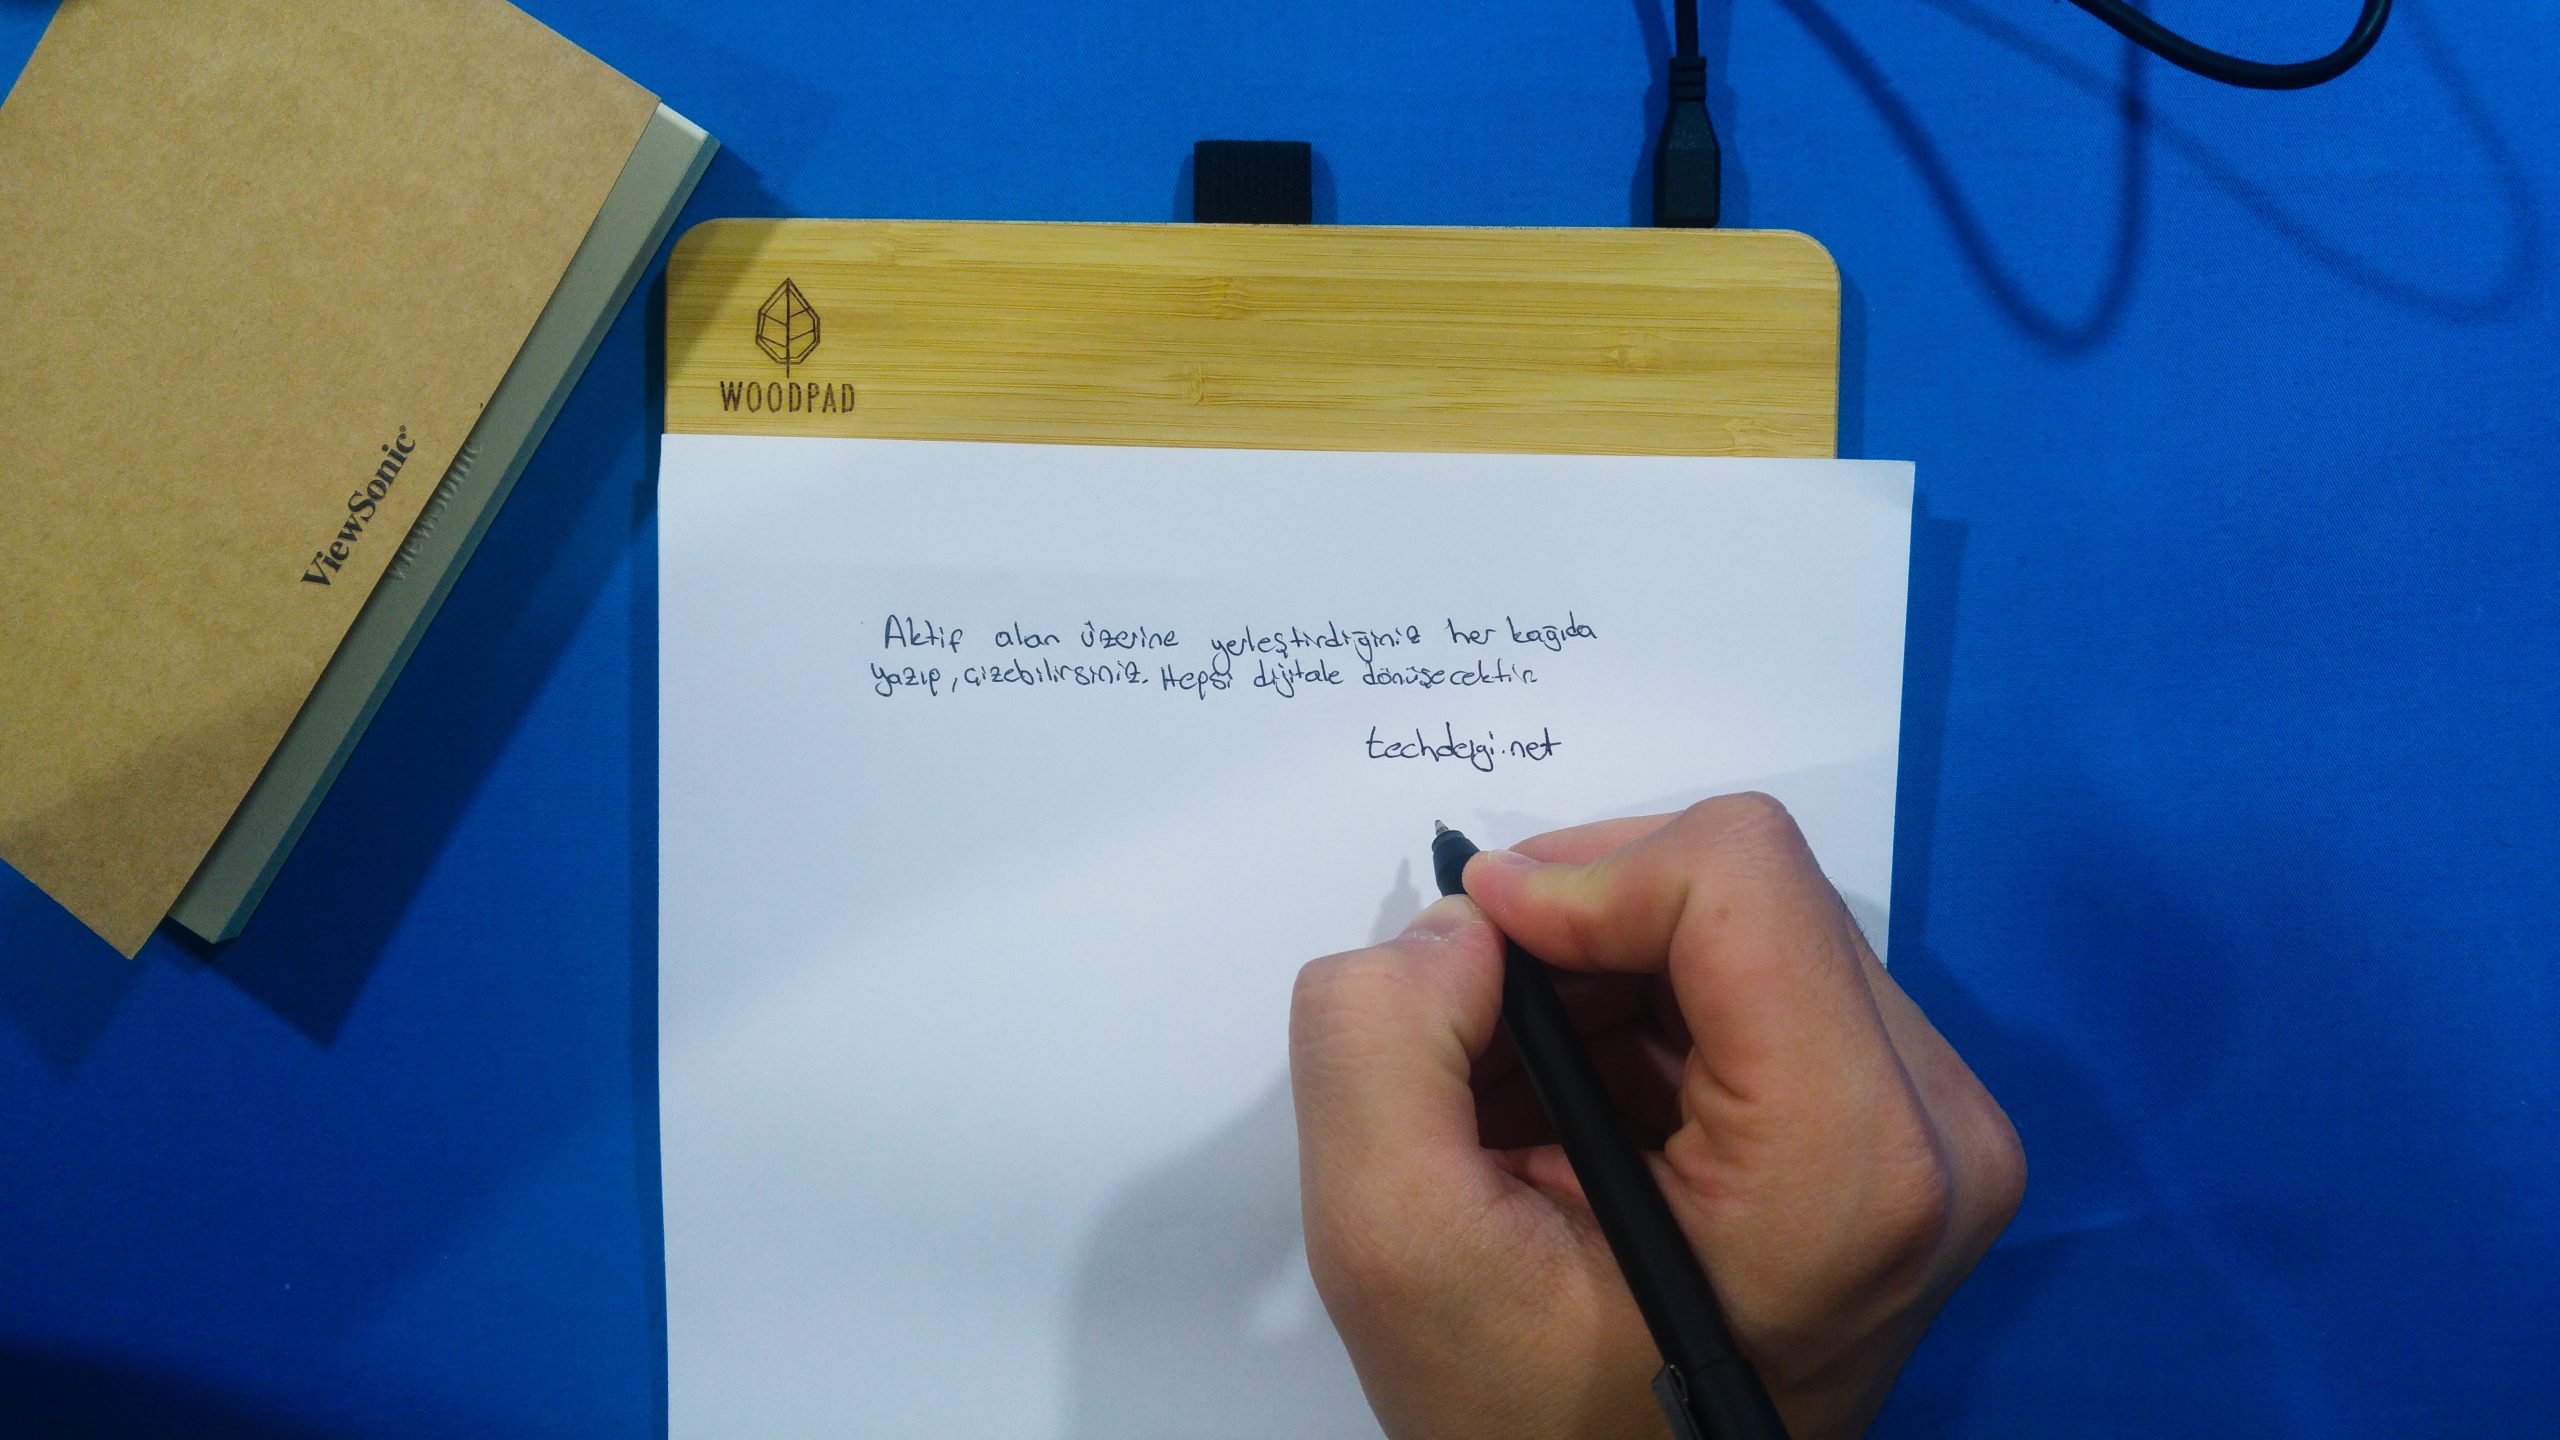 ViewSonic
WOODPAD
Aktif alan üzerine yerleştirdiğiniz her kağıda
yazıp, çizebilirsiniz. Hepsi dijitale dönüşecektir
techdergi.net